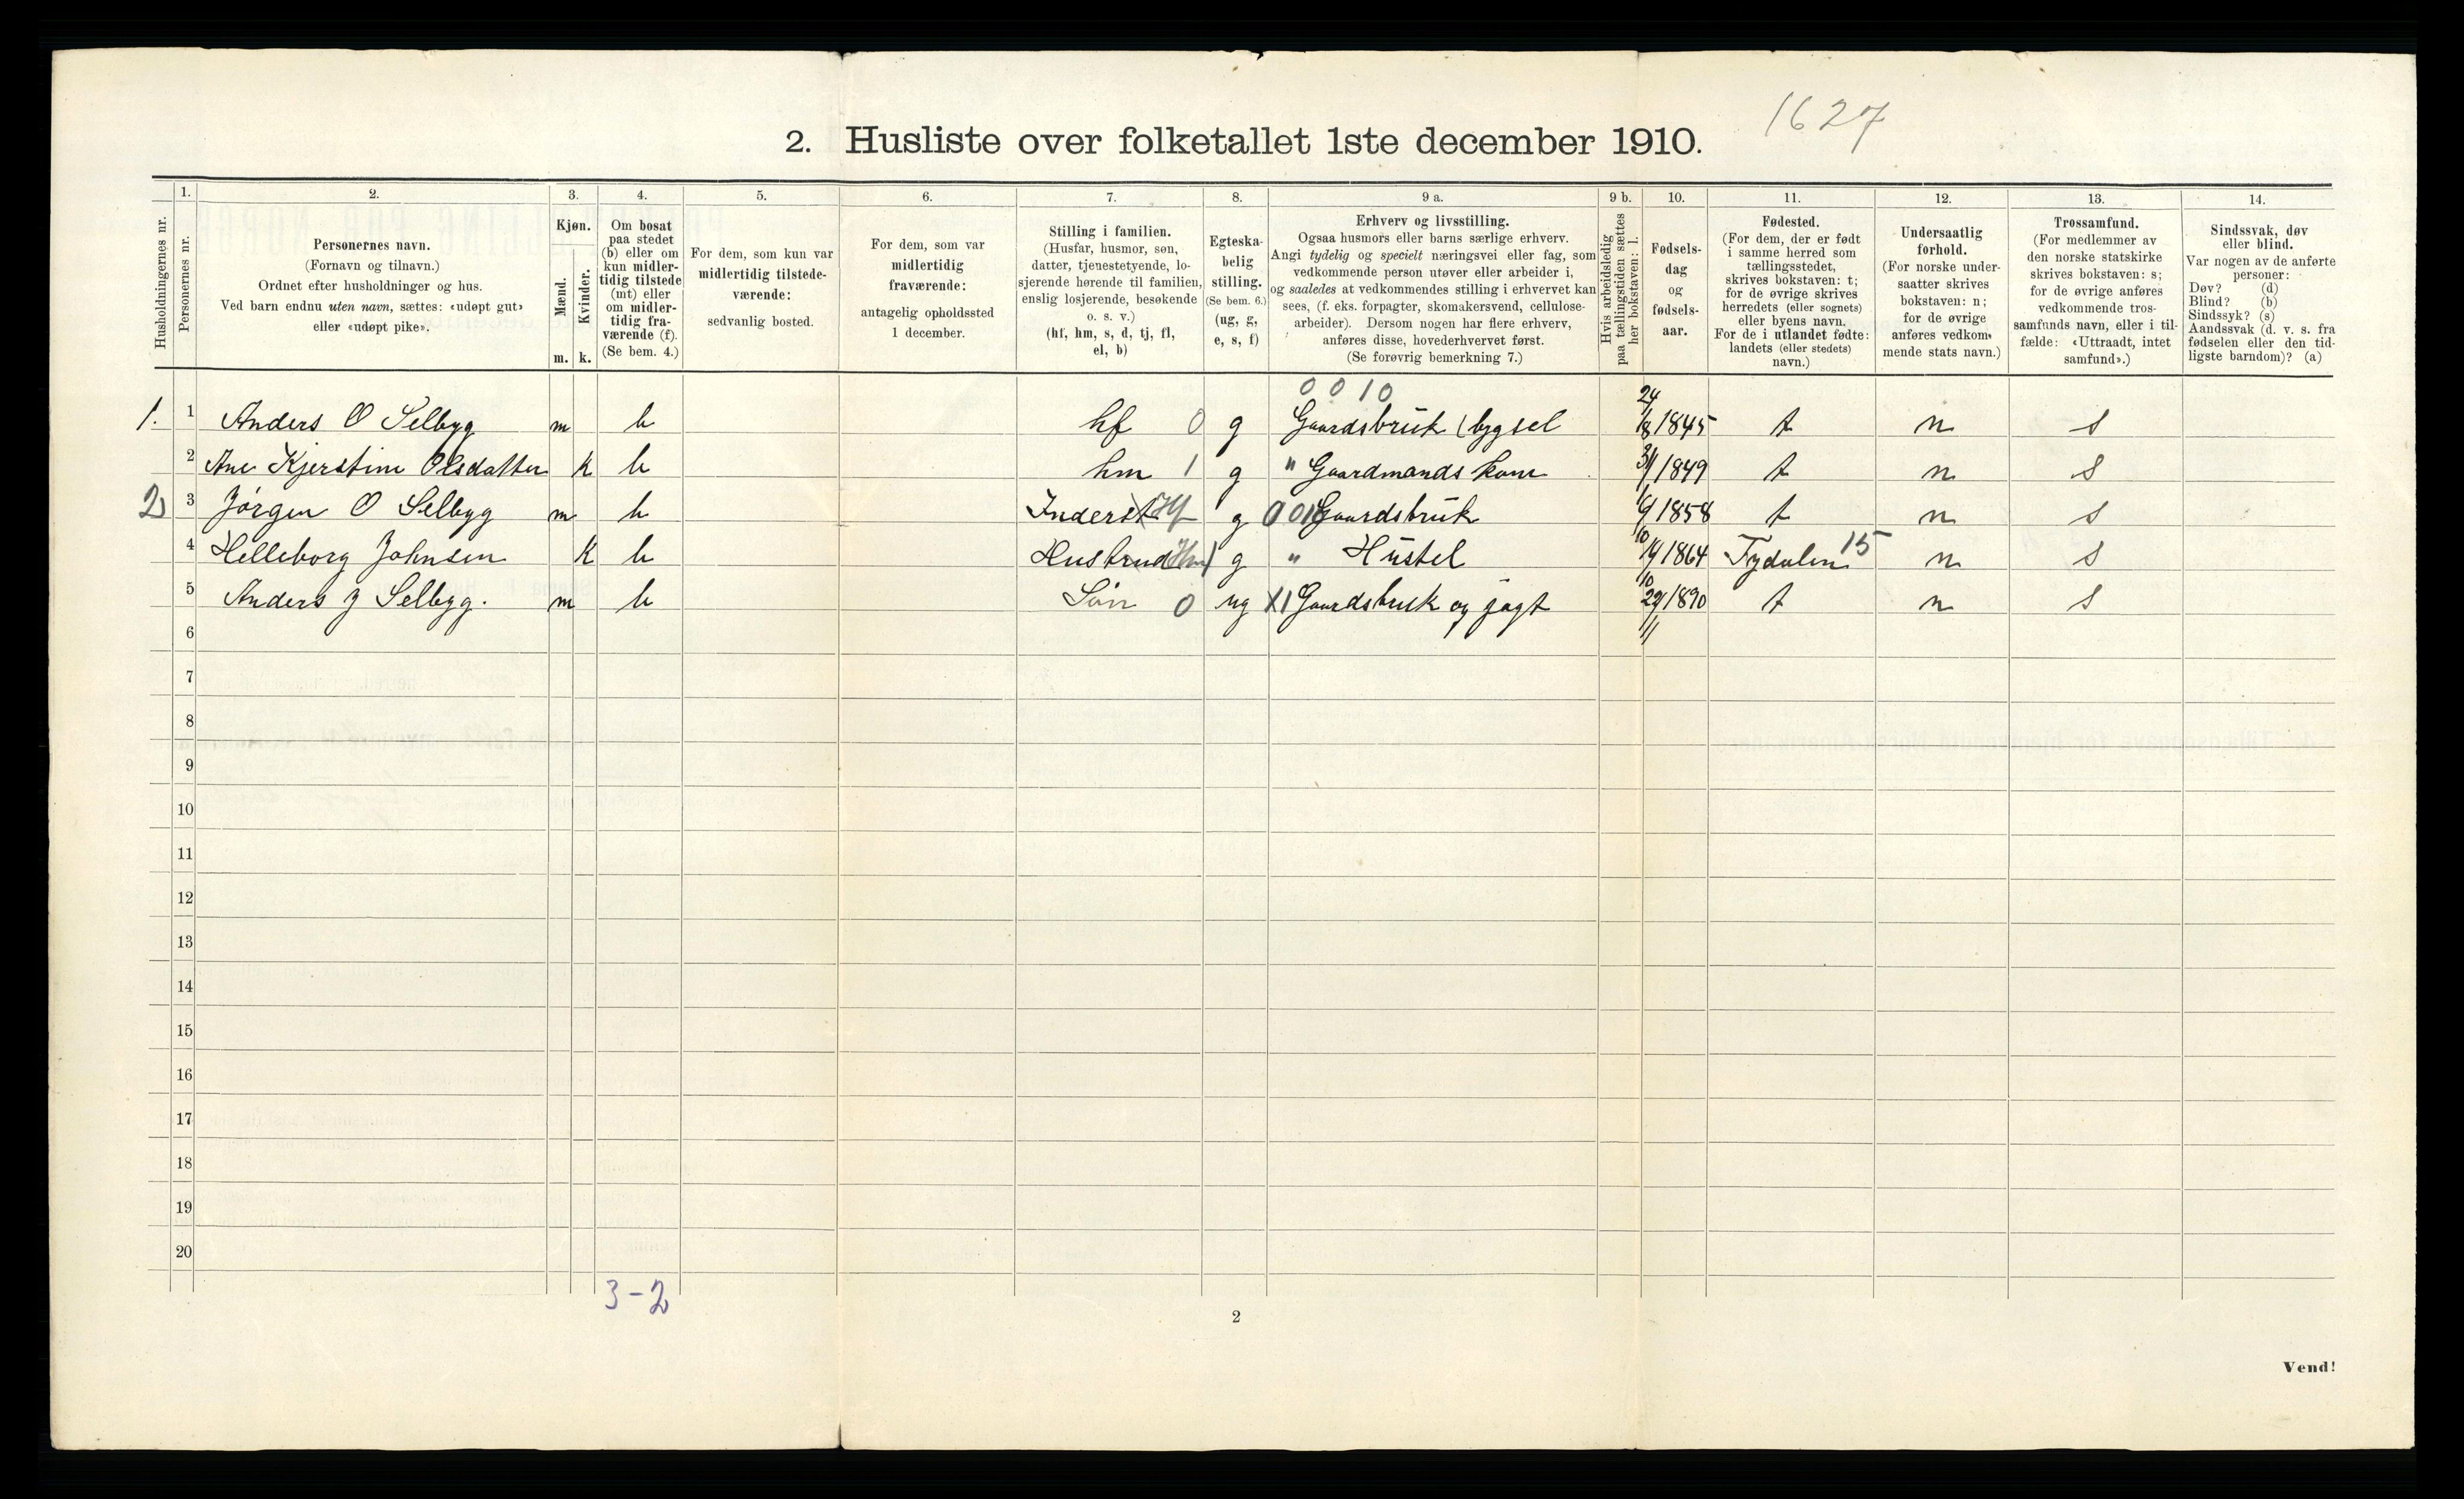 1627
2. Husliste over folketallet 1ste december 1910.
Husholdningernes nr.
1.
Personernes nr.
2.
Personernes navn.
(Fornavn og tilnavn.)
Ordnet efter husholdninger og hus.
Ved barn endnu uten navn, sættes: «udøpt gut»
eller «udøpt pike».
3.
Kjøn.
Mænd.
Kvinder.
m. k.
4.
Om bosat
paa stedet
(b) eller om
kun midler-
tidig tilstede
(mt) eller
om midler-
tidig fra-
værende (f).
(Se bem. 4.)
5.
For dem, som kun var
midlertidig tilstede-
værende:
sedvanlig bosted.
6.
For dem, som var
midlertidig
fraværende:
antagelig opholdssted
1 december.
7.
Stilling i familien.
(Husfar, husmor, søn,
datter, tjenestetyende, lo-
sjerende hørende til familien,
enslig losjerende, besøkende
o. s. v.)
(hf, hm, s, d, tj, fl,
el, b)
8.
Egteska-
belig
stilling.
(Se bem. 6.)
(ug, g,
e, s, f)
9 a.
Erhverv og livsstilling.
Ogsaa husmors eller barns særlige erhverv.
Angi tydelig og specielt næringsvei eller fag, som
vedkommende person utøver eller arbeider i,
og saaledes at vedkommendes stilling i erhvervet kan
sees, (f. eks. forpagter, skomakersvend, cellulose-
arbeider). Dersom nogen har flere erhverv,
anføres disse, hovederhvervet først.
(Se forøvrig bemerkning 7.)
9 b.
Hvis arbeidsledig
paa tællingstiden sættes
her bokstaven: l.
10.
Fødsels-
dag
og
fødsels-
aar.
11.
Fødested.
(For dem, der er født
i samme herred som
tællingsstedet,
skrives bokstaven: t;
for de øvrige skrives
herredets (eller sognets)
eller byens navn.
For de i utlandet fødte:
landets (eller stedets)
navn.)
12.
Undersaatlig
forhold.
(For norske under-
saatter skrives
bokstaven: n;
for de øvrige
anføres vedkom-
mende stats navn.)
13.
Trossamfund.
(For medlemmer av
den norske statskirke
skrives bokstaven: s;
for de øvrige anføres
vedkommende tros-
samfunds navn, eller i til-
fælde: «Uttraadt, intet
samfund».)
14.
Sindssvak, døv
eller blind.
Var nogen av de anførte
personer:
Døv? (d)
Blind? (b)
Sindssyk? (s)
Aandssvak (d. v. s. fra
fødselen eller den tid-
ligste barndom)? (a)
0 0 10
1. 1 Anders O Selbyg m b hf 0 g Gaardsbruk (bygsel 24/8 1845 t n s
2 Ane Kjerstine Olsdatter k b hm 1 g " Gaardmands kone 31/ 1849 t n s
2) 3 Jørgen O Selbyg m b Inderst Hf g 0 010 Gaardsbruk 1858 t n s
4 Helleborg Johnsen k b Hustrud Hm g " Hustel 14/10 1864 Tydalen 15 n s
5 Anders J Selbyg. m b Søn 0 ug X1 Gaardsbruk og jagt 29/11 1890 t n s
6
7
8
9
10
11
12
13
14
15
16
17
18
19
20
3-2
2
Vend!